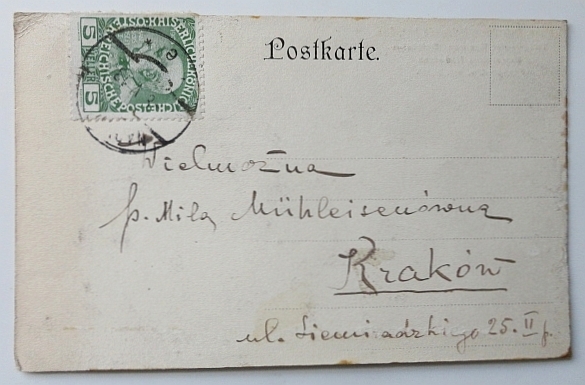 Postkarte.
KAISERLICH KÖNIGL
OSTERREICHISCHE POST
5 HELLER 5
Wielmożna
p. Mila Mühleisenówna
Kraków
ul. Siemiradzkiego 25. II p.